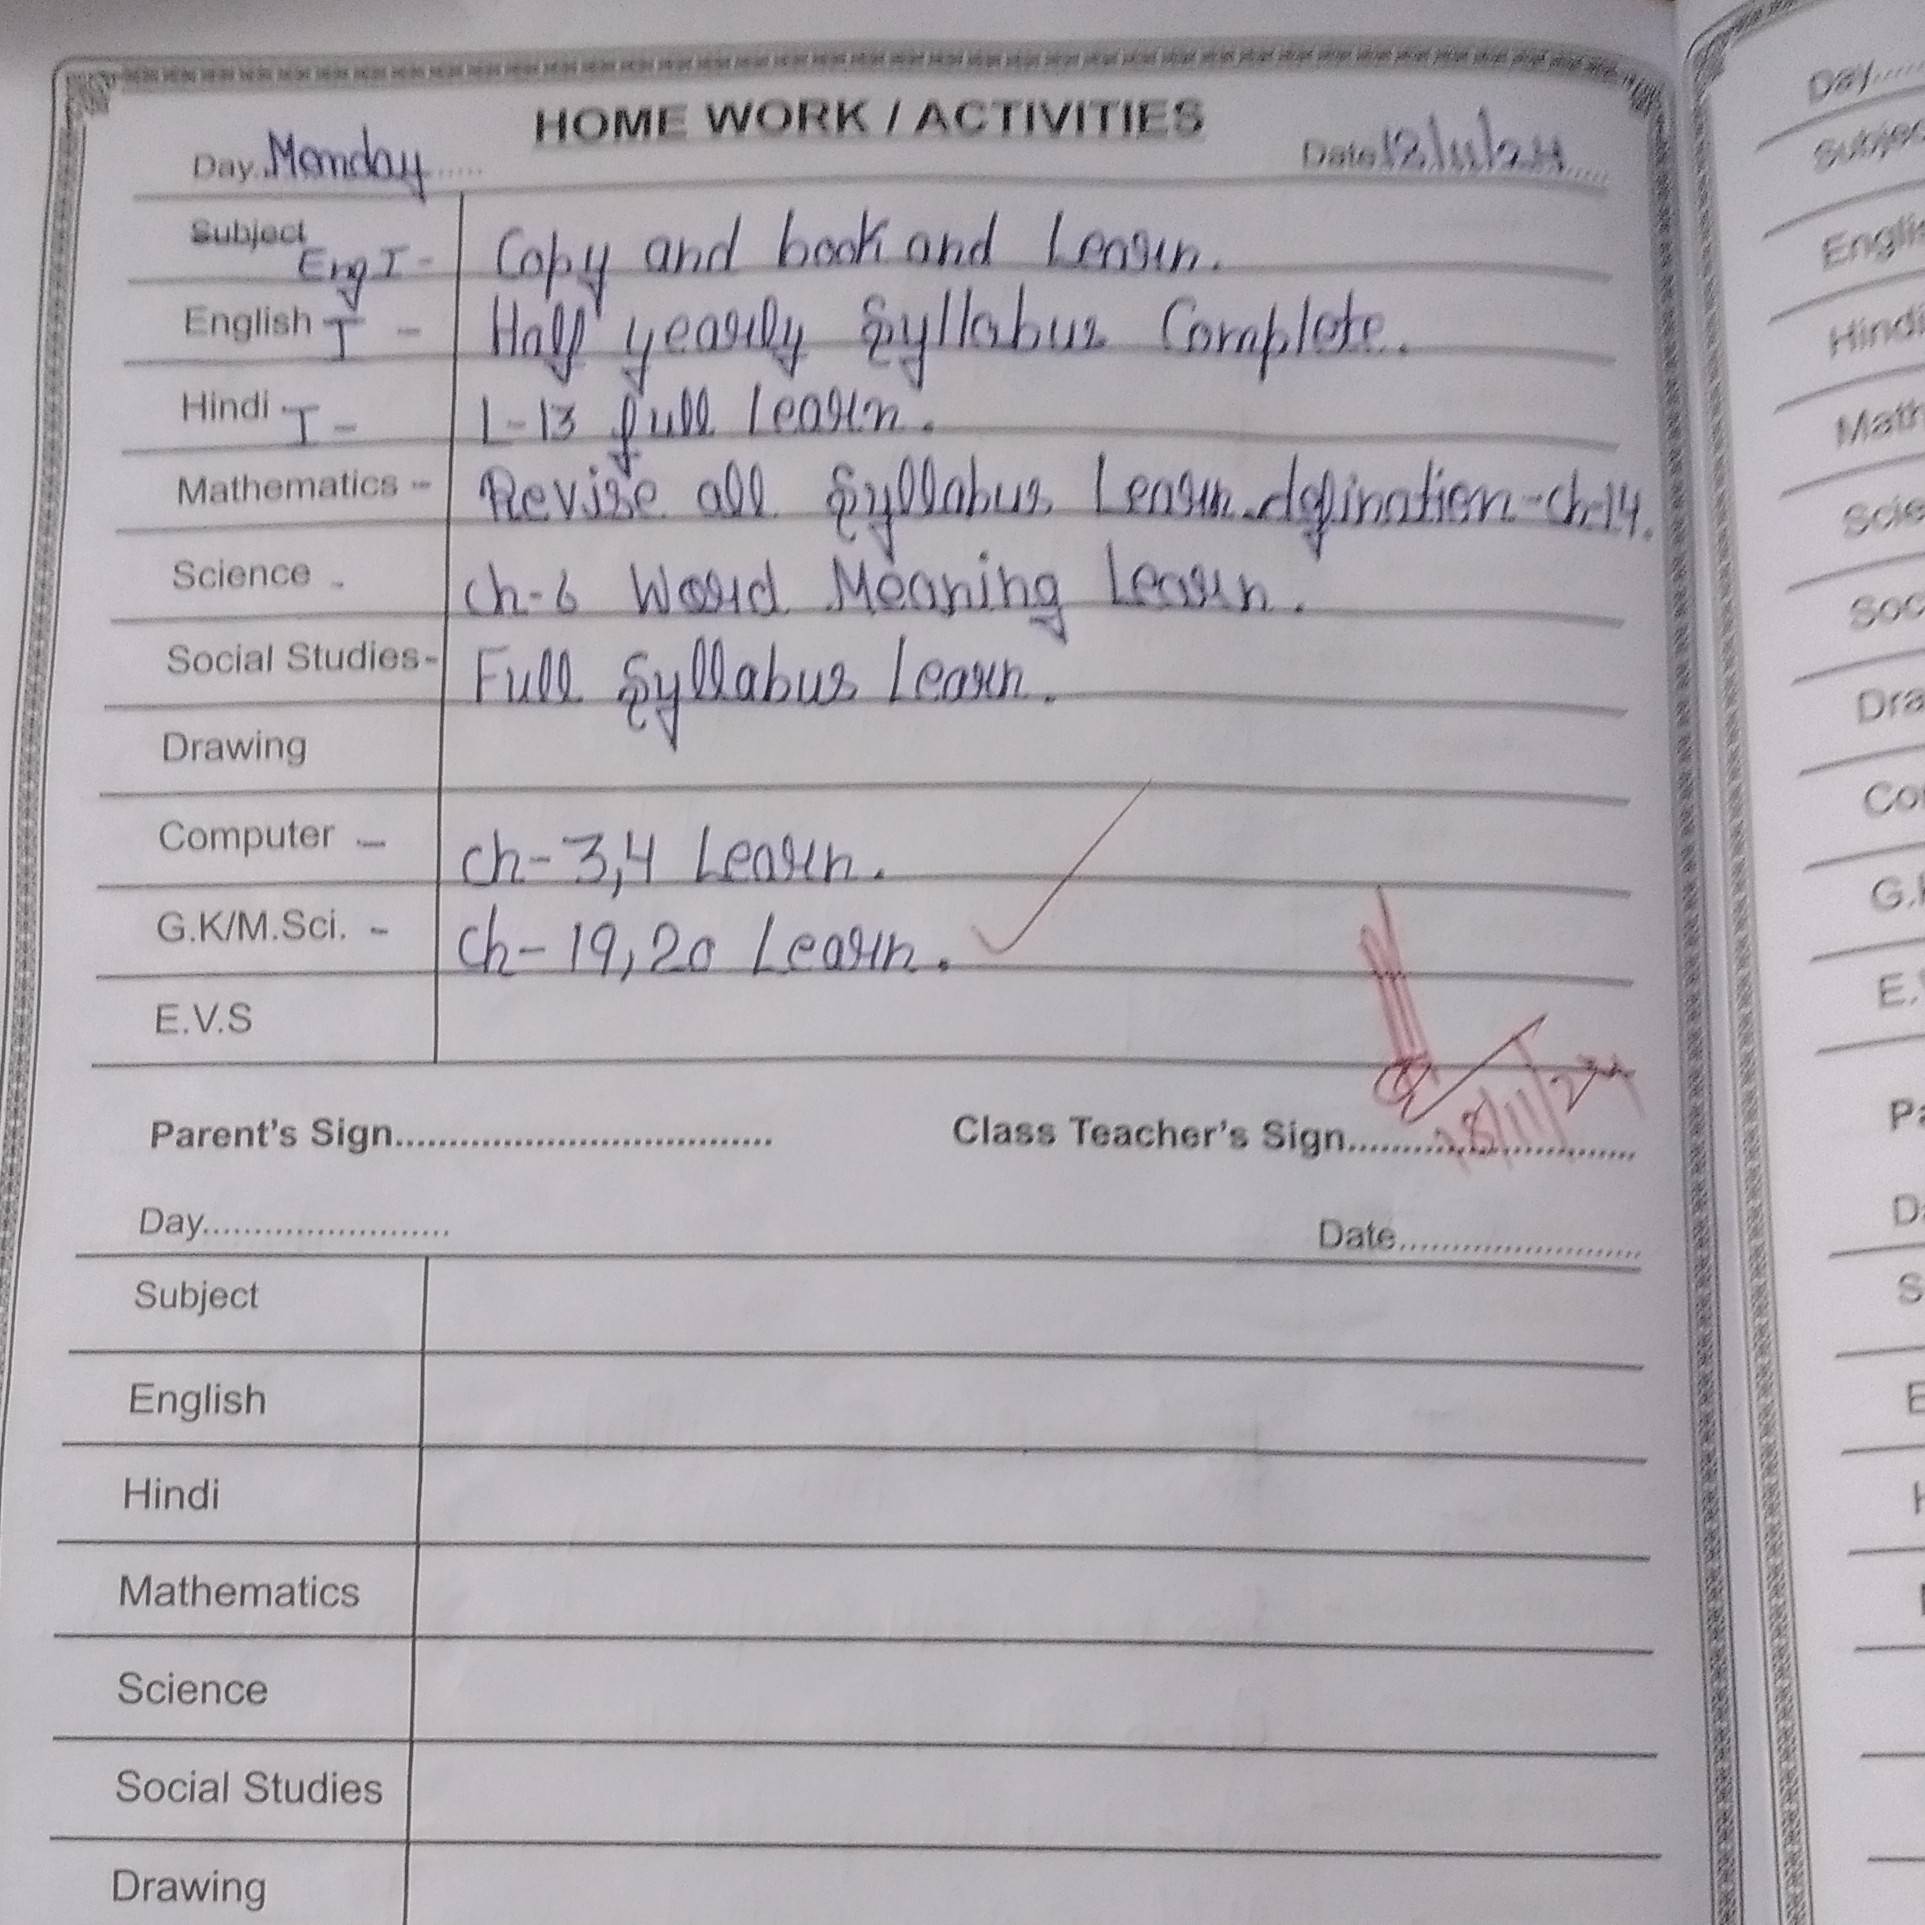 HOME WORK / ACTIVITIES
Day. Monday Date 12/11/24
Subject Eng I - Copy and book and Learn.
English I - Half yearly Syllabus Complete.
Hindi I - L-13 full learn.
Mathematics - Revise all Syllabus Learn defination-ch-14.
Science - Ch-6 Word Meaning Learn.
Social Studies - Full Syllabus Learn.
Drawing
Computer - Ch-3,4 Learn.
G.K/M.Sci. - Ch-19,20 Learn.
E.V.S
Parent's Sign.................................... Class Teacher's Sign.................................... 18/11/24
Day........................ Date........................
Subject
English
Hindi
Mathematics
Science
Social Studies
Drawing
Day.....